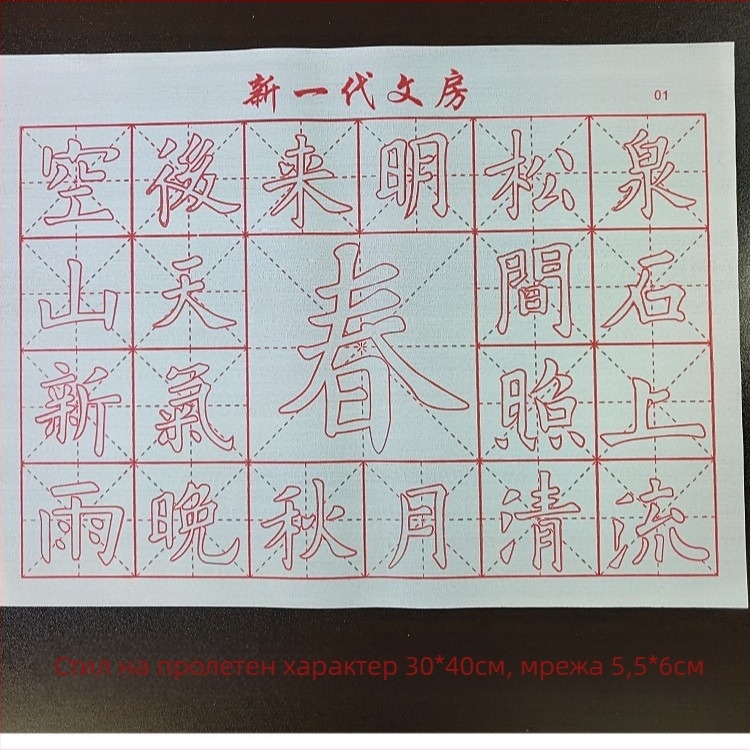 新一代文房
01
空後来明松泉
山天間石
春
新氣照上
雨晚秋月清流
Стил на пролетен характер 30*40см, мрежа 5,5*6см